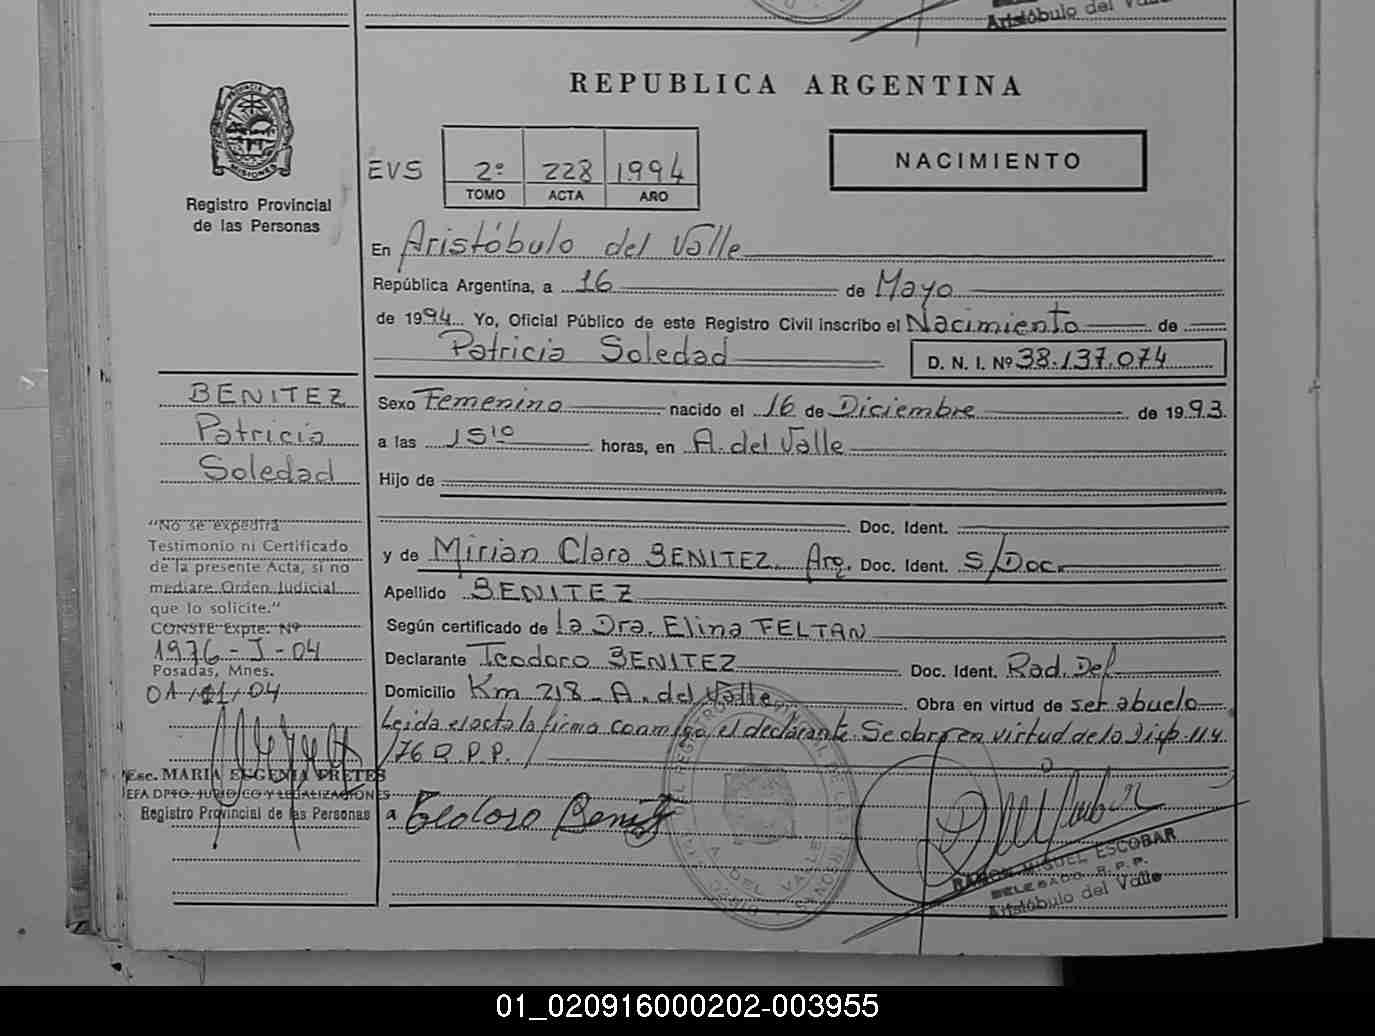 Aristóbulo del
REPUBLICA ARGENTINA
PROVINCIA DE
MISIONES
Registro Provincial
de las Personas
EVS 2º 228 1994
TOMO ACTA AÑO
NACIMIENTO
En Aristóbulo del Valle
República Argentina, a 16 de Mayo
de 1994 Yo, Oficial Público de este Registro Civil inscribo el Nacimiento de
Patricia Soledad D. N. I. Nº 38.137.074
BENITEZ
Patricia
Soledad
"No se expedirá
Testimonio ni Certificado
de la presente Acta, si no
mediare Orden Judicial
que lo solicite."
CONSTE Expte. Nº
1976-J-04
Posadas, Mnes.
04
Esc. MARIA EUGENIA PRETES
EFA DPTO. JURIDICO Y LEGALIZACIONES
Registro Provincial de las Personas
Sexo Femenino nacido el 16 de Diciembre de 1993
a las 15¹⁰ horas, en A. del Valle
Hijo de
Doc. Ident.
y de Mirian Clara BENITEZ. Arg. Doc. Ident. S/Doc.
Apellido BENITEZ
Según certificado de la Dra. Elina FELTAN
Declarante Teodoro BENITEZ Doc. Ident. Rad. Def.
Domicilio Km 218 - A. del Valle Obra en virtud de ser abuelo
Leida el acta la firma conmigo, el declarante. Se obra en virtud de la Disp. 11 y
/76 D.P.P.
a Teodoro Benitez
A. DEL VALLE
RAMON MIGUEL ESCOBAR
DELEGADO R.P.P.
Aristóbulo del Valle
01_020916000202-003955